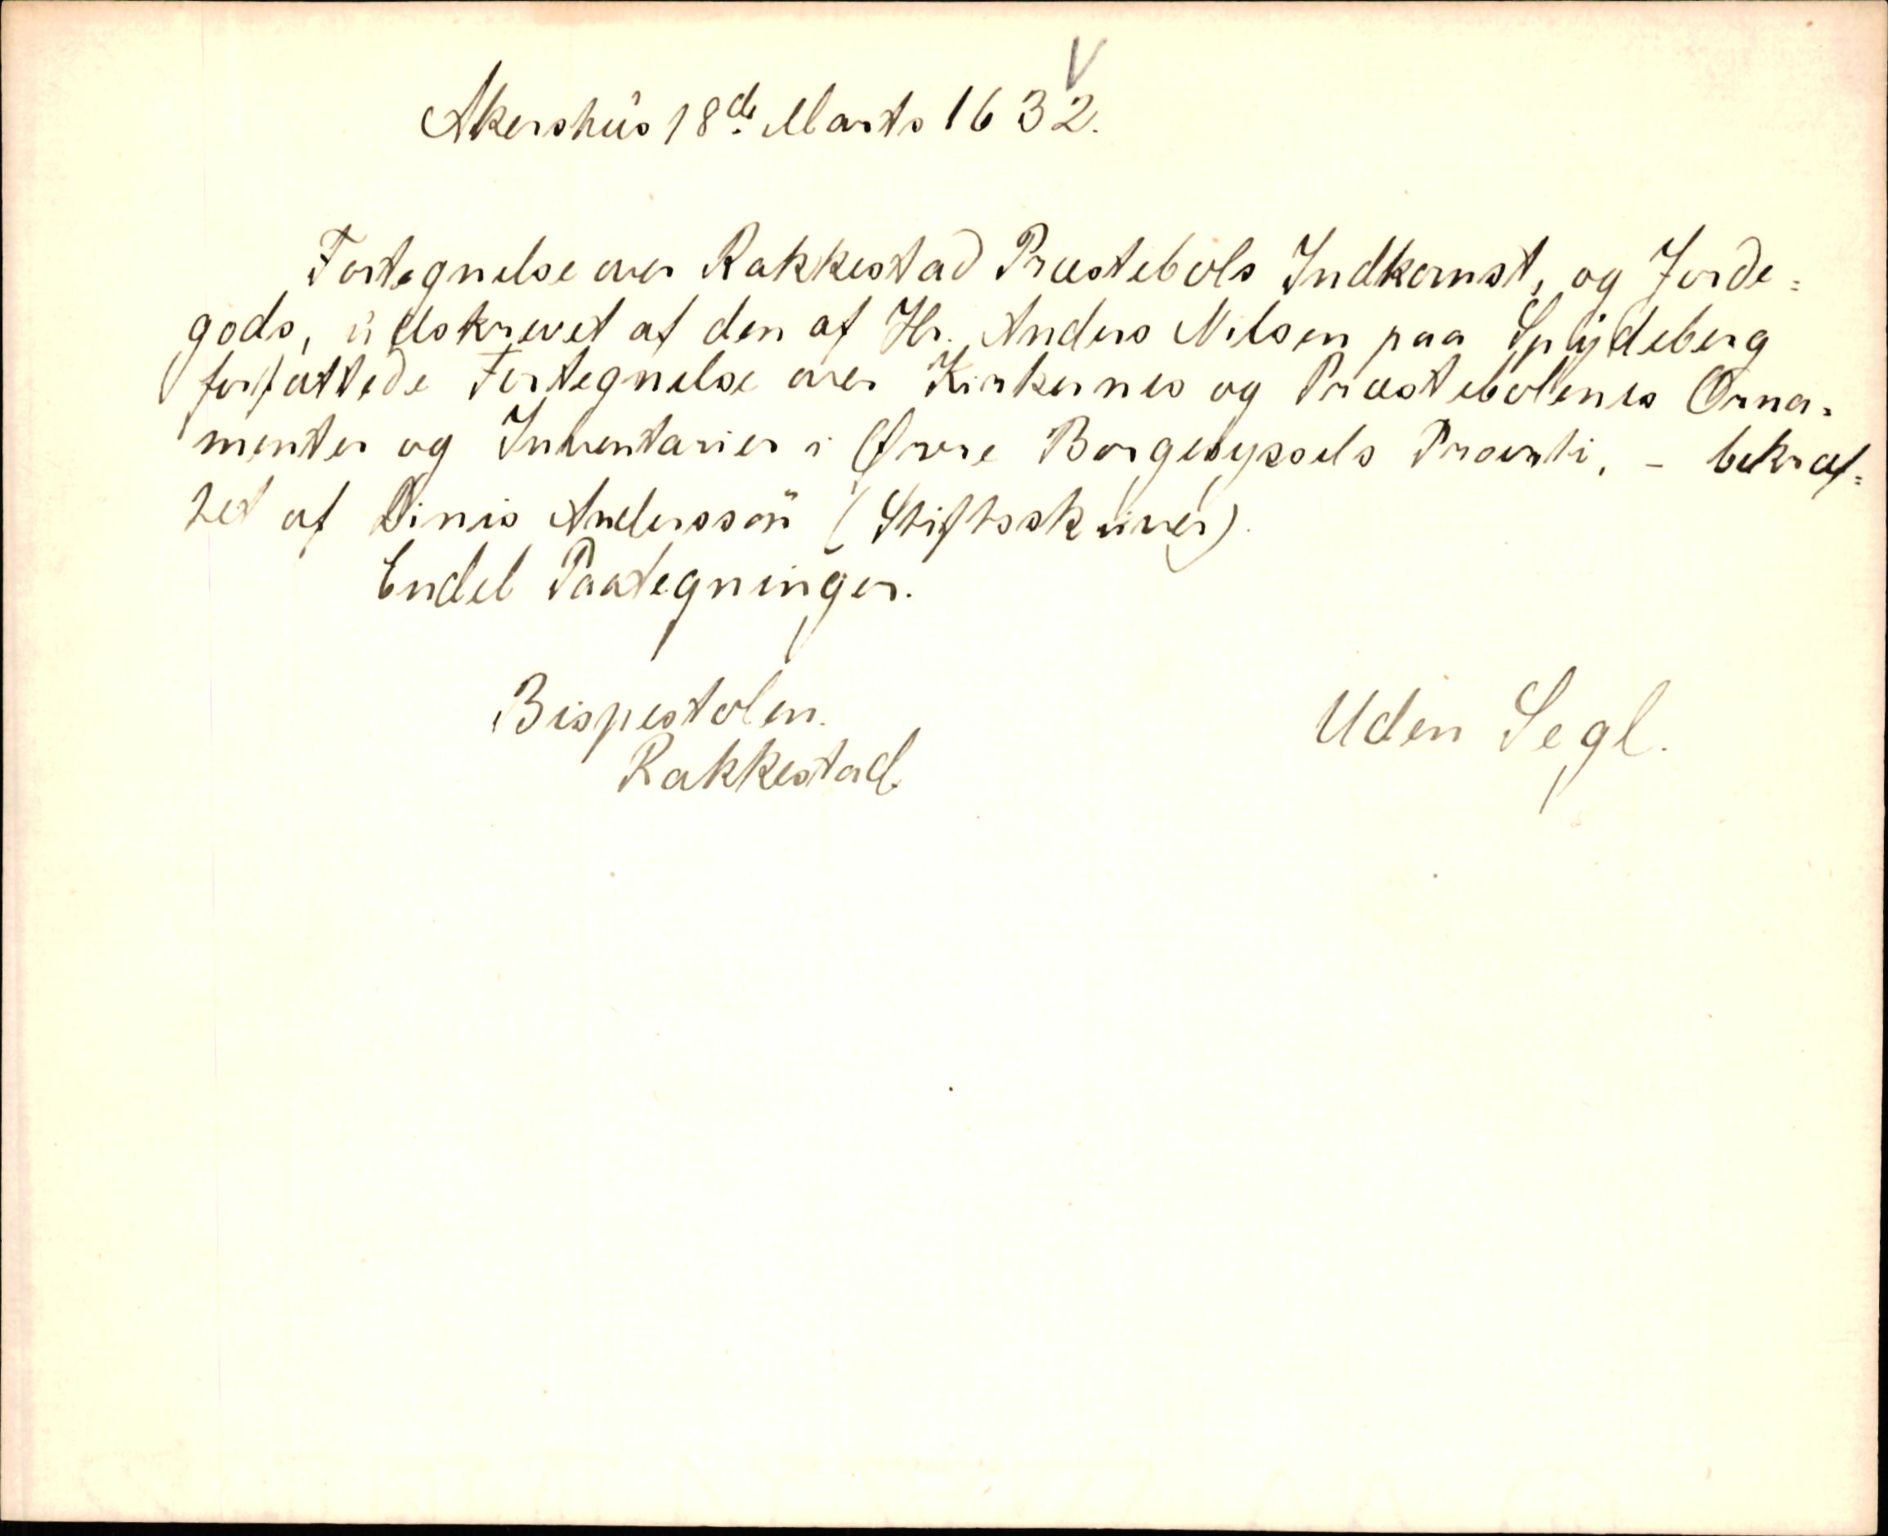 Akershus 18de Marts 1632.
Fortegnelse over Rakkestad Præstebols Indkomst, og Jorde=
gods, udskrevet af den af Hr. Anders Nilsen paa Spydeberg
forfattede Fortegnelse over Kirkernes og Præstebolenes Orna=
menter og Inventarier i Øvre Borgesyssels Provsti, - bekræf=
tet af Dinis Anderssøn (Stiftsskriver).
Endel Paategninger.
Bispestolen.
Rakkestad.
Uden Segl.